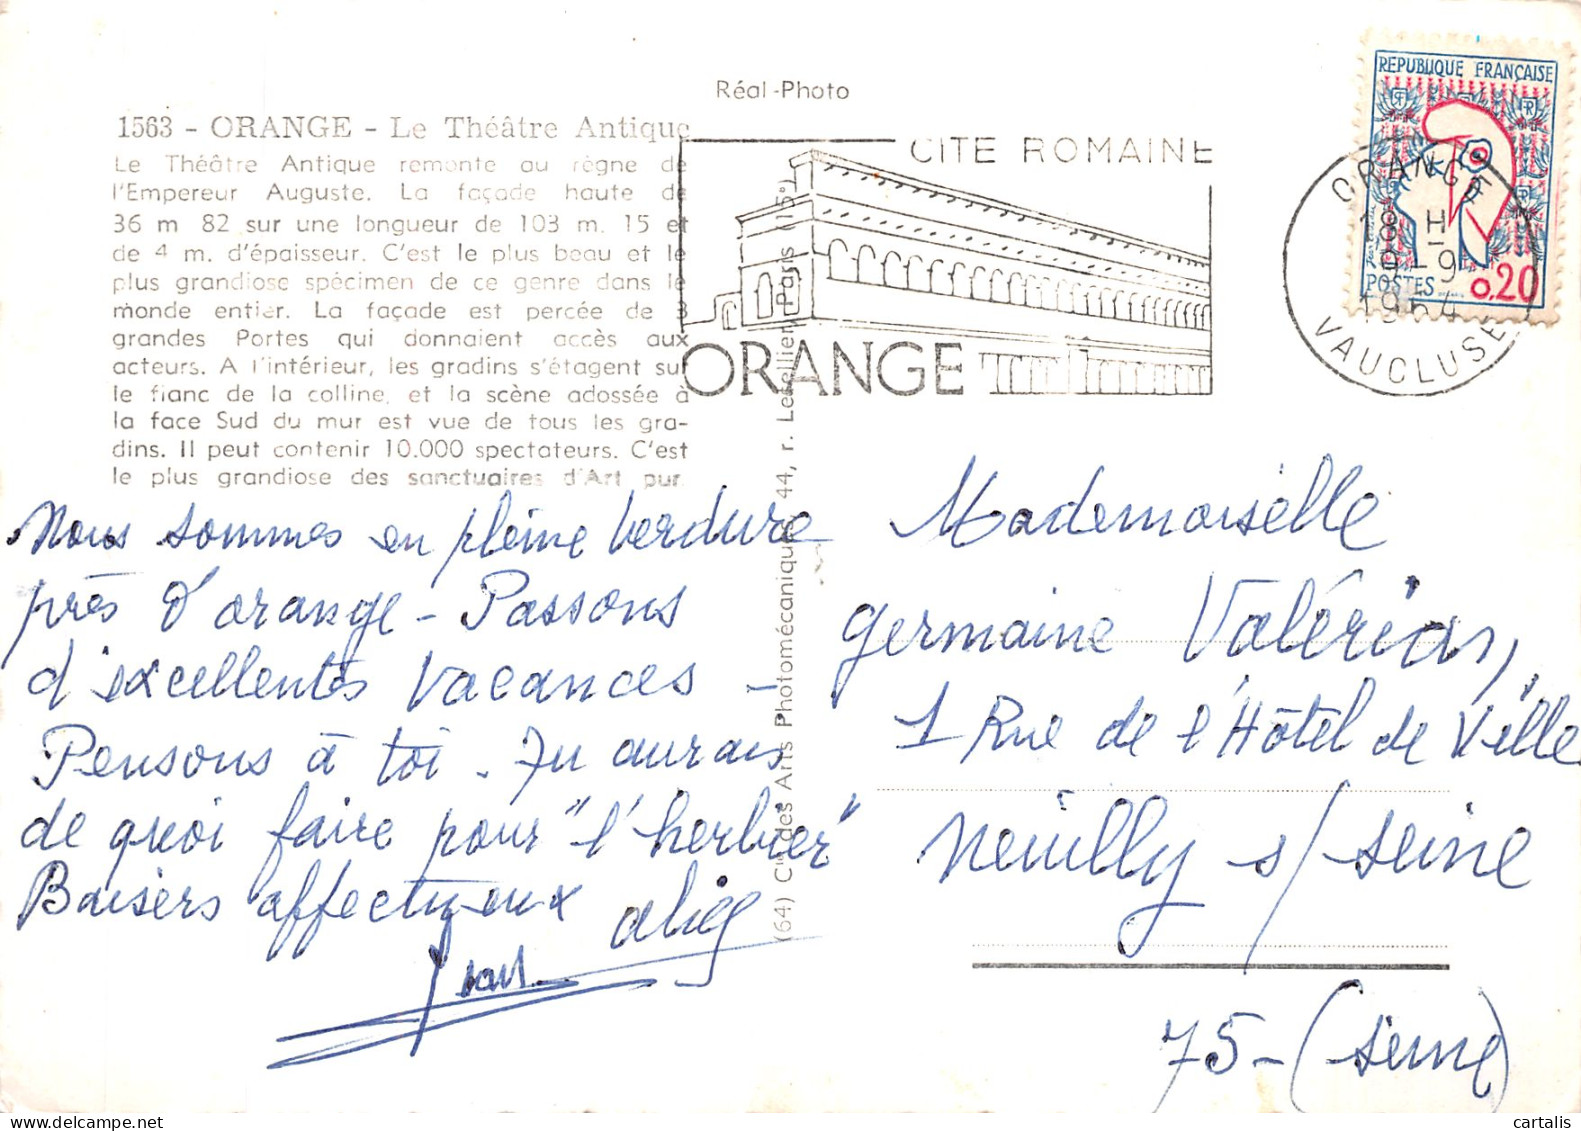 Réal-Photo
1563 - ORANGE - Le Théâtre Antique
Le Théâtre Antique remonte au règne de
l'Empereur Auguste. La façade haute de
36 m 82 sur une longueur de 103 m. 15 et
de 4 m. d'épaisseur. C'est le plus beau et le
plus grandiose spécimen de ce genre dans le
monde entier. La façade est percée de 3
grandes Portes qui donnaient accès aux
acteurs. A l'intérieur, les gradins s'étagent sur
le flanc de la colline, et la scène adossée à
la face Sud du mur est vue de tous les gra-
dins. Il peut contenir 10.000 spectateurs. C'est
le plus grandiose des sanctuaires d'Art pur.
CITÉ ROMAINE
ORANGE
ORANGE
18 H
-9
1964
VAUCLUSE
REPUBLIQUE FRANÇAISE
POSTES 0,20
(64) Cie des Arts Photomécaniques, 44, r. Letellier, Paris (15e)
Nous sommes en pleine verdure
près d'orange - Passons
d'excellentes vacances -
Pensons à toi. Tu aurais
de quoi faire pour "l'herbier"
Baisers affectueux
Mademoiselle
Germaine Valérian,
1 Rue de l'Hôtel de Ville
Neuilly s/ Seine
75 - (Seine)
cartalis